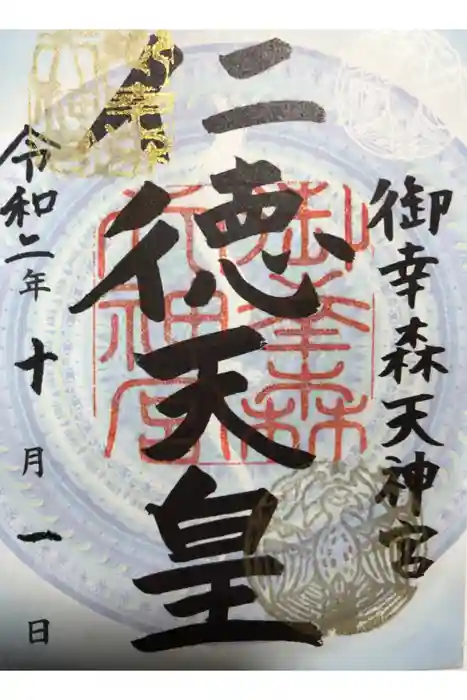 御幸森天神宮
仁徳天皇
令和二年十月一日